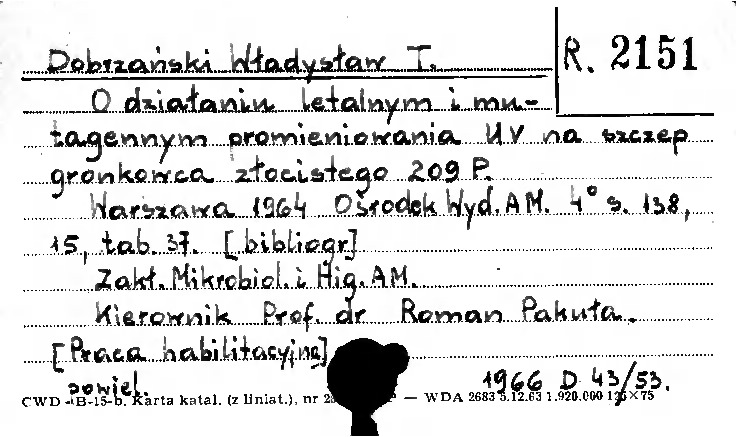 Dobrzański Władysław T.
R. 2151
O działaniu letalnym i mu-
tagennym promieniowania UV na szczep
gronkowca złocistego 209 P.
Warszawa 1964 Ośrodek Wyd. AM. 4° s. 138,
15, tab. 37. [bibliogr]
Zakł. Mikrobiol. i Hig. AM.
Kierownik Prof. dr Roman Pakuła.
[Praca habilitacyjna]
powiel. 1966 D 43/53.
CWD - B-15-b. Karta katal. (z liniat.), nr — WDA 2683 5.12.63 1.920.000 125×75